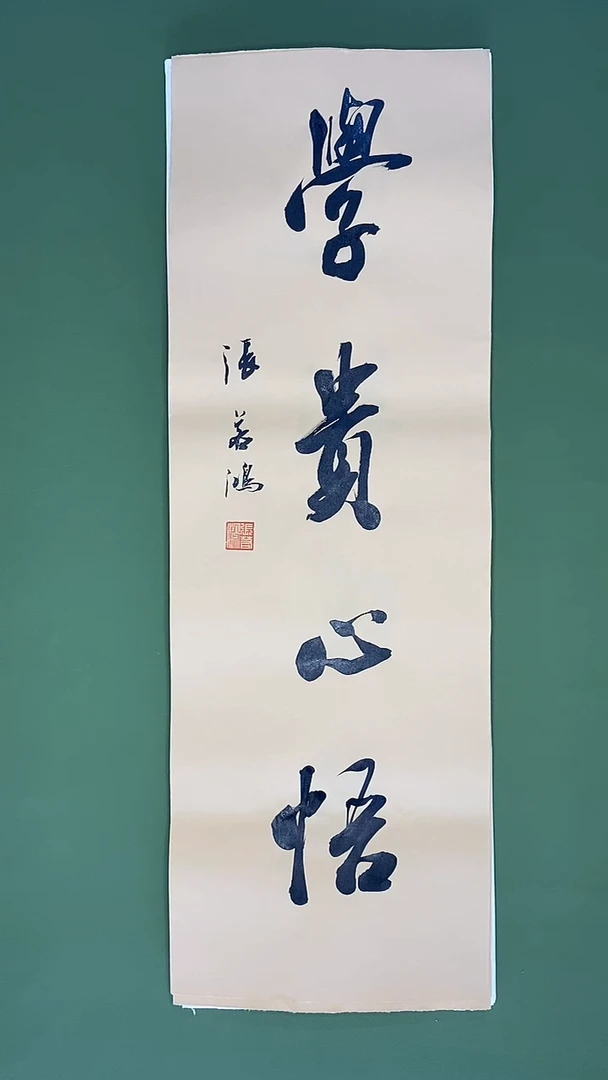 學貴心悟
張若鴻